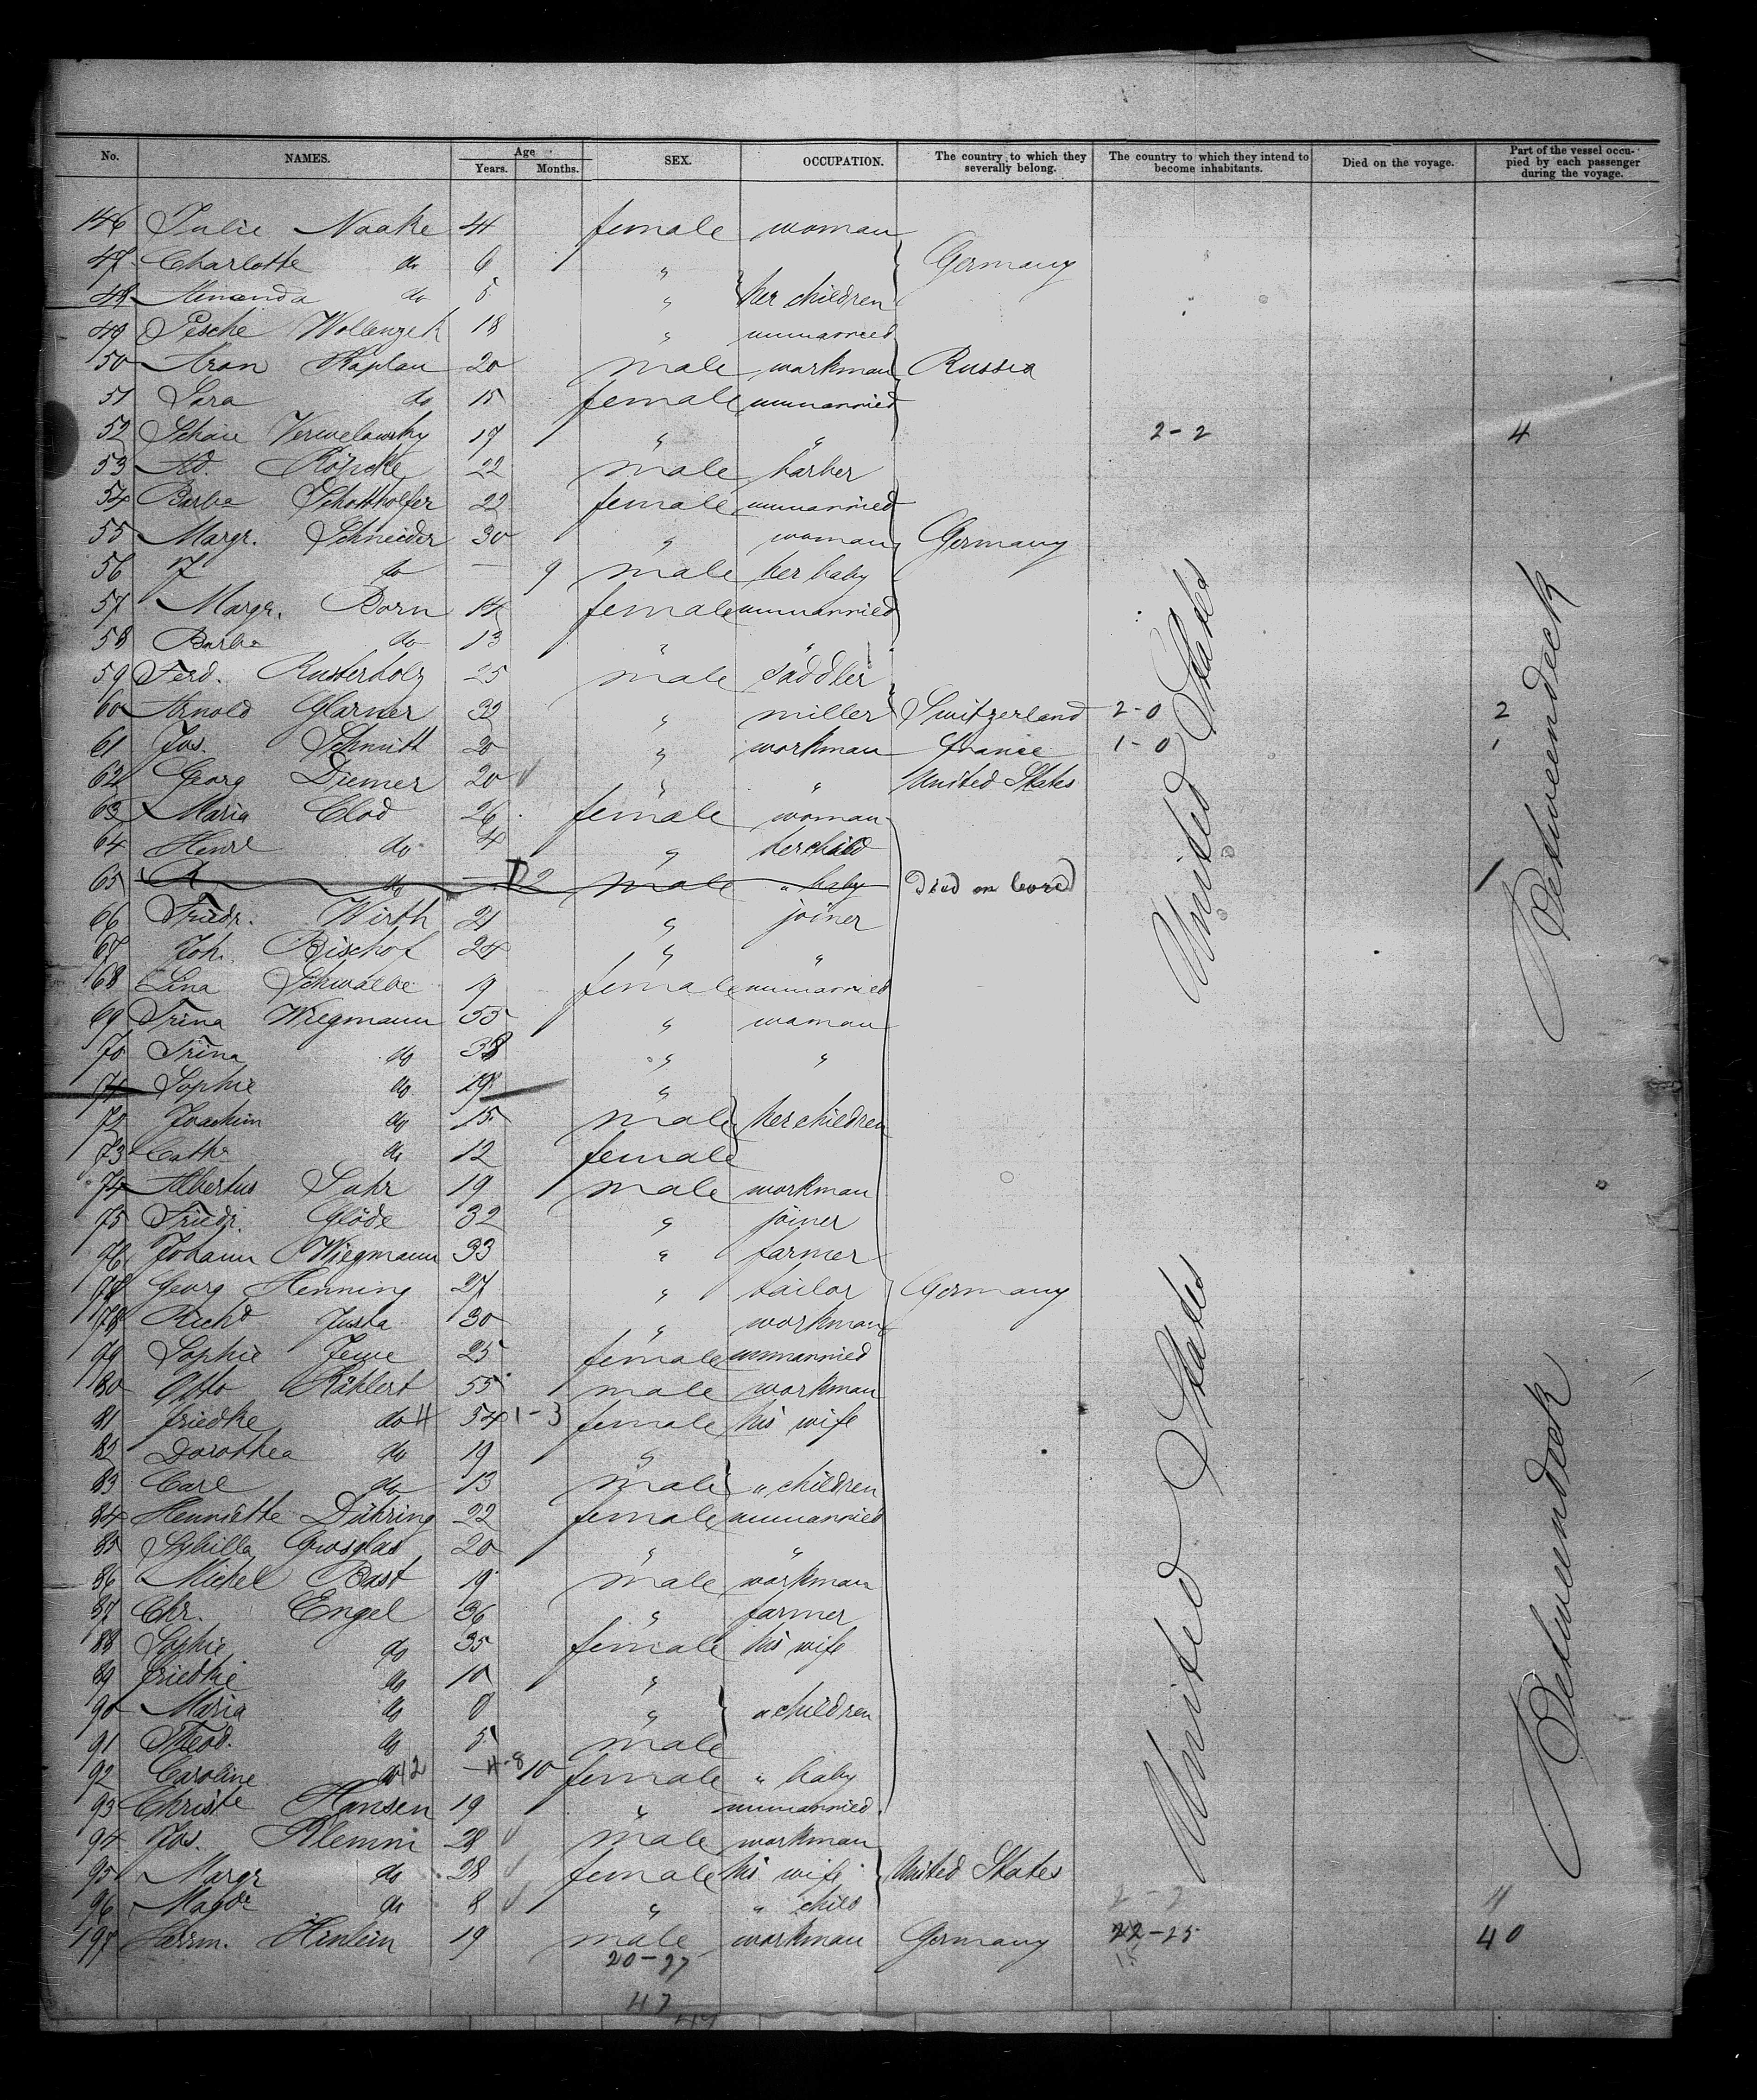 No. NAMES. Age Years. Months. SEX. OCCUPATION. The country to which they severally belong. The country to which they intend to become inhabitants. Died on the voyage. Part of the vessel occupied by each passenger during the voyage.
146 Julie Naake 41 female woman
47 Charlotte do 6 " Germany
48 Amanda do 5 " her children
49 Pesche Wollenzek 18 " unmarried
50 Aron Kaplan 20 male workman Russia
51 Sara do 15 female unmarried
52 19 " " 2-2 4
53 Ad. Köpcke 22 male barber
54 Barba Schotthofer 22 female unmarried
55 Margr. Schneider 30 " woman Germany
56 do — 9 male her baby
57 Margr. Born 14 female unmarried
58 Barba do 13 " "
59 Ferd. Rusterholz 25 male saddler
60 Arnold Glarner 32 " miller Switzerland 2-0 2
61 Jos. Schmitt 20 " workman France 1-0 1
62 Georg Diemer 20 " " United States
63 Maria Clod 26 female woman
64 Henrl do 4 " her child
65 A do — 2 male " baby Died on board
66 Friedr. Wirth 21 " joiner
67 Joh. Bischof 24 " "
168 Lina Schwalbe 19 female unmarried
69 Trina Wiegmann 55 " woman
70 Trina do 38 " "
71 Sophie do 19 "
72 Joachim do 15 male her children
73 Cathr do 12 female
74 Albertus Suhr 19 male workman
75 Friedr. Glöde 32 " joiner
76 Johann Wiegmann 33 " farmer
77 Georg Henning 27 " tailor Germany
78 Richd Justa 30 " workman
79 Sophie Jewe 25 female unmarried
80 Otto Kählert 55 male workman
81 Friedke do 4 54 1-3 female his wife
82 Dorothea do 19 "
83 Carl do 13 male " children
84 Henriette Dühring 22 female unmarried
85 Sybilla Grosglas 20 " "
86 Michel Bast 19 male workman
87 Chr. Engel 36 " farmer
88 Sophie do 35 female his wife
89 Friedke do 10 "
90 Maria do 8 " " children
91 Theod. do 5 male
92 Caroline do 12 — 4-8 10 female " baby
93 Christe Hansen 19 " unmarried
94 Jos. Klemm 28 male workman
95 Margr do 28 female his wife United States
96 Magde do 8 " " child 2-2 4
197 Herrm. Hinlein 19 male workman Germany 22-25 40
20-27 15
47
United States
Betweendeck
United States
Betweendeck